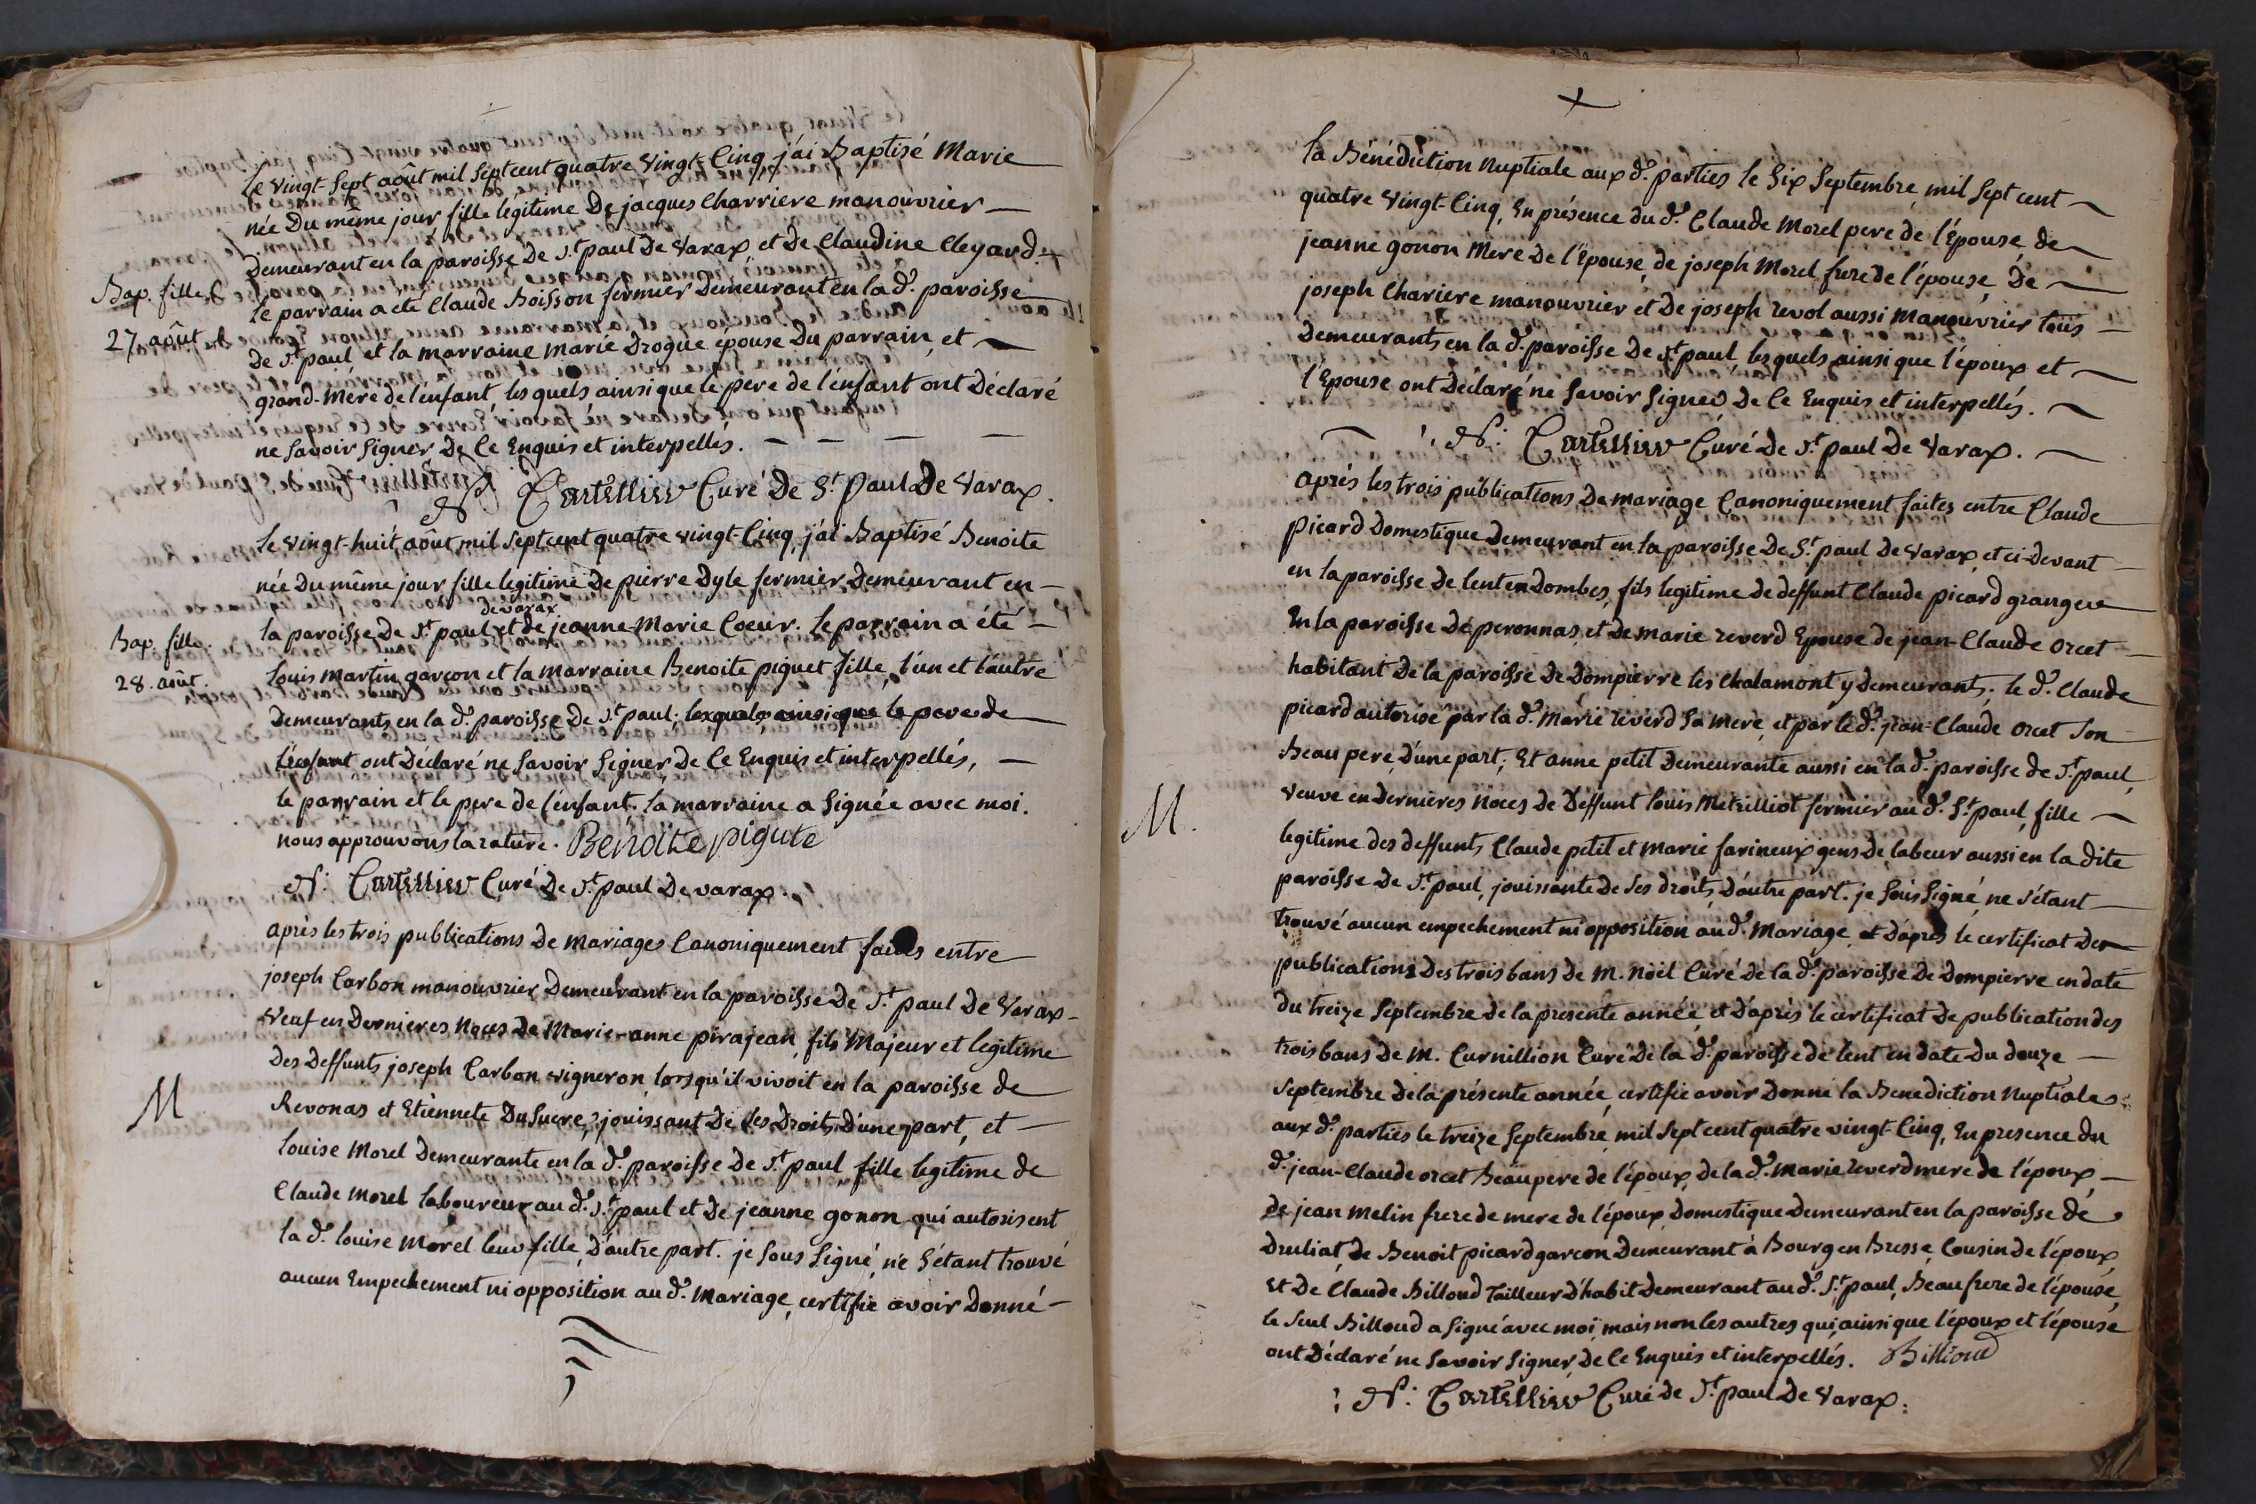 Le vingt sept août mil sept cent quatre vingt-Cinq, j'ai Baptisé Marie
née Du même jour fille legitime De jacques Charriere manouvrier
Demeurant en la paroisse De St. paul De varax et De Claudine Cleyard.
Bap. fille
27 août
le parrain a eté Claude Boisson fermier Demeurant en la d. paroisse
de St. paul et la marraine marie Drogue epouse Du parrain, et
grand-Mère de l'enfant lesquels ainsi que le pere de l'enfant ont Déclaré
ne Savoir Signer, De Ce Enquis et interpellés.
N. Cartellier Curé De St. paul De varax.
le vingt-huit août mil sept cent quatre vingt-Cinq, j'ai Baptisé Benoite
née Du même jour fille legitime De pierre Dyle fermier Demeurant en
de varax
la paroisse De St. paul et de jeanne-Marie Coeur. le parrain a été
Bap. fille.
28. août.
Louis Martin garçon et la marraine Benoite piquet fille, l'un et l'autre
Demeurants en la d. paroisse De St. paul; lesquels ainsi que le pere de
l'enfant ont Déclaré ne Savoir Signer, De Ce Enquis et interpellés,
le parrain et le pere de l'enfant. la marraine a Signée avec moi.
nous approuvons la rature. Benoite pigute
N. Cartellier Curé De St. paul De varax.
après les trois publications De mariages Canoniquement faites entre
joseph Carbon manouvrier Demeurant en la paroisse De St. paul De varax
veuf en Dernieres Noces De Marie-anne pirajean, fils Majeur et legitime
Des Deffunts joseph Carbon vigneron lorsqu'il vivoit en la paroisse de
M
Revonas et Etiennete Du Sucre, jouissant De ses Droits, D'une part, et
Louise Morel Demeurante en la d. paroisse De St. paul fille legitime de
Claude Morel laboureur au d. St. paul et De jeanne gonon qui autorisent
la d. louise Morel leur fille, D'autre part. je Sous Signé, ne S'étant trouvé
aucun Empechement ni opposition au d. Mariage, certifie avoir Donné
la Bénédiction Nuptiale aux d. parties le Six Septembre mil Sept cent
quatre vingt-Cinq, En présence du d. Claude Morel pere de l'épouse, de
jeanne gonon Mere De l'Epouse, de joseph Morel frere de l'épouse, De
joseph Chariere manouvrier et De joseph revol aussi Manouvrier tous
Demeurants en la d. paroisse De St. paul lesquels ainsi que l'époux et
l'Epouse ont Déclaré ne Savoir Signer De Ce Enquis et interpellés.
N. Cartellier Curé De St. paul De varax.
après les trois publications De mariage Canoniquement faites entre Claude
Picard Domestique Demeurant en la paroisse De St. paul De varax, et ci-Devant
en la paroisse de lent en Dombes, fils legitime de deffunt Claude picard granger
En la paroisse De peronnas, et De marie reverd Epouse de jean-Claude orcet
habitant De la paroisse De Dompierre lès chalamont y Demeurants; le d. Claude
picard autorisé par la d. Marie reverd sa mere, et par le d. jean-Claude orcet Son
Beau pere, D'une part; Et anne petit Demeurante aussi en la d. paroisse de St. paul,
M.
veuve en Dernieres Noces de Deffunt louis Metrilliot fermier au d. St. paul, fille
legitime des deffunts Claude petit et marie farineux gens de labeur aussi en la dite
paroisse De St. paul, jouissante de Ses droits, D'autre part. je Sous Signé, ne S'étant
trouvé aucun empechement ni opposition au d. Mariage, et D'après le certificat Des
publications Des trois bans de M. Noël Curé de la d. paroisse De Dompierre en date
du treize Septembre de la presente année, et D'après le certificat De publication des
trois bans De M. Curnillion Curé De la d. paroisse de lent en date Du douze
Septembre de la présente année, certifie avoir Donné la Benediction Nuptiale
aux d. parties le treize Septembre mil Sept cent quatre vingt-Cinq, En presence du
d. jean-Claude orcet Beau pere de l'époux, de la d. Marie reverd mere de l'époux,
de jean melin frere de mere de l'époux Domestique Demeurant en la paroisse de
Druliat, de Benoit picard garçon Demeurant à Bourg en Bresse, Cousin de l'époux,
Et De Claude Billoud Tailleur D'habit Demeurant au d. St. paul, Beau frere de l'épouse,
le Seul Billoud a Signé avec moi, mais non les autres qui, ainsi que l'époux et l'épouse
ont Déclaré ne Savoir Signer, De Ce Enquis et interpellés. Billioud
N. Cartellier Curé de St. paul De varax.